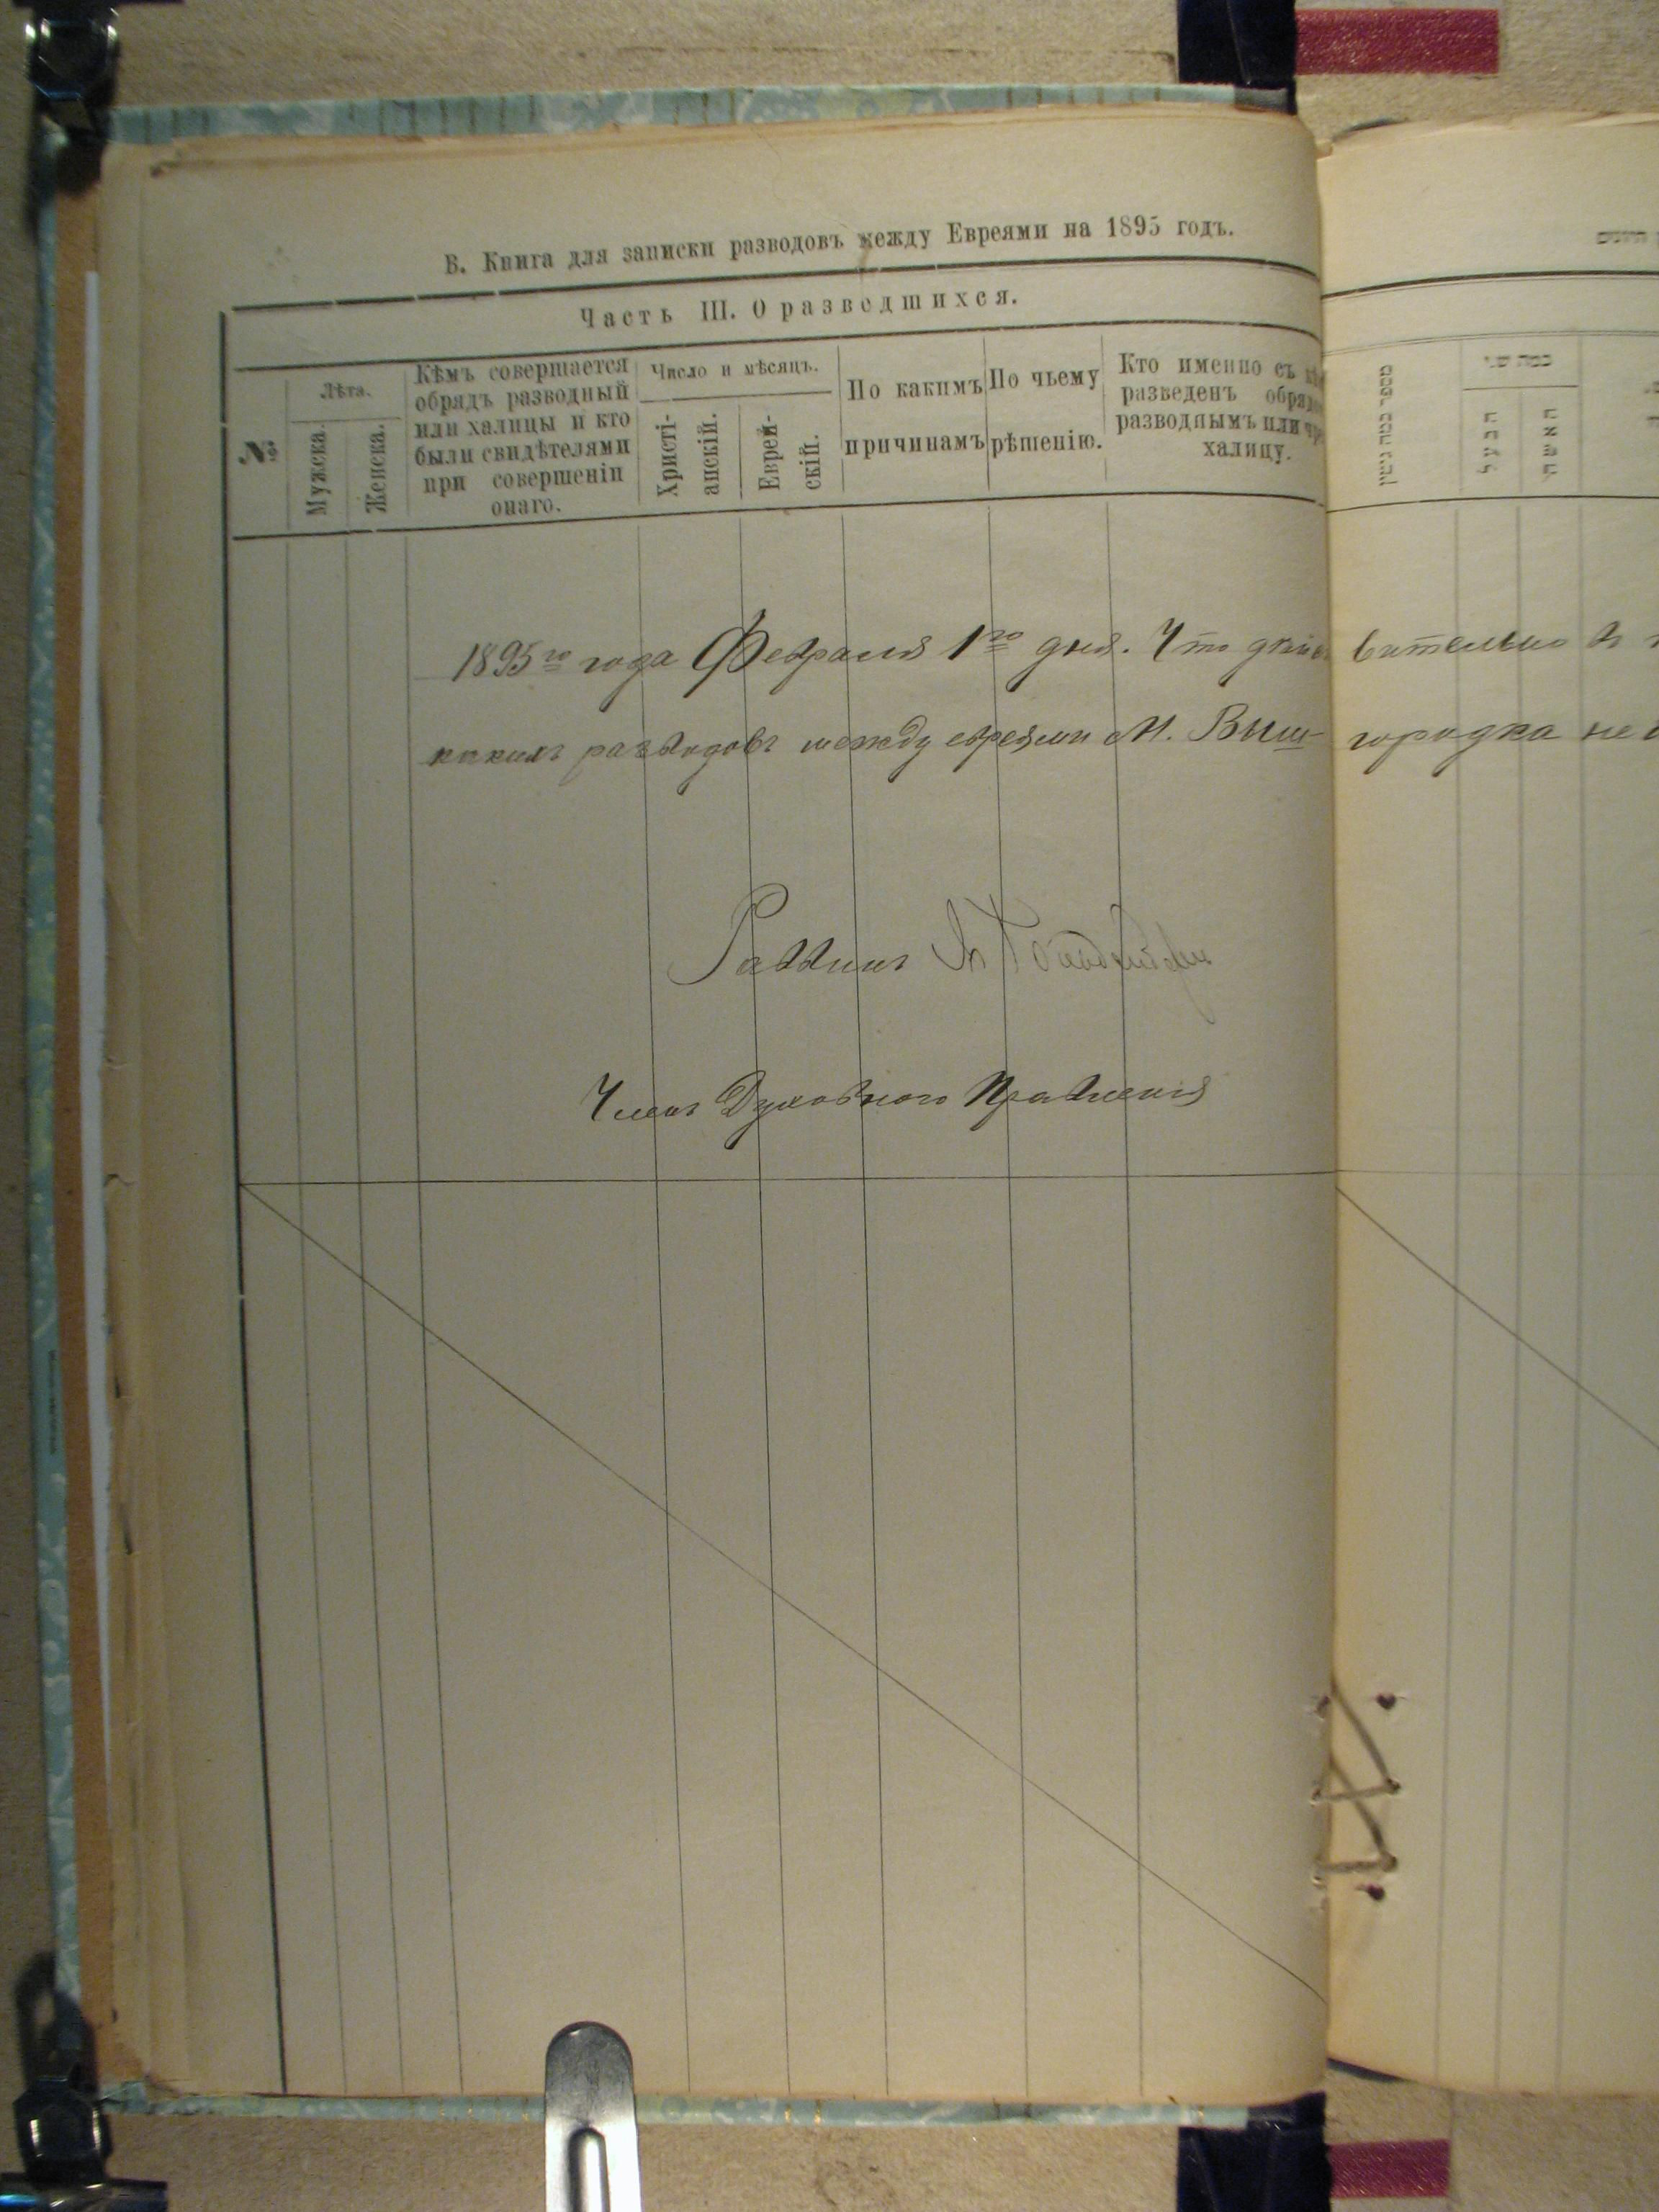 В. Книга для записки разводовъ между Евреями на 1895 годъ.
Часть III. О разведшихся.
№
Лѣта.
Мужска.
Женска.
Кѣмъ совершается
обрядъ разводный
или халицы и кто
были свидѣтелями
при совершеніи
онаго.
Число и мѣсяцъ.
Христі-
анскій.
Еврей-
скій.
По какимъ
причинамъ
По чьему
рѣшенію.
Кто именно съ
разведенъ
разводнымъ или
халицу.
מספר כמה גטין
כמה שני
הבעל
האשה
1895го года Февраля 1го дня. Что дѣйст вительно
какихъ разводовъ между евреями М. Выш- городка не
Раввинъ
Членъ Духовного Правленія